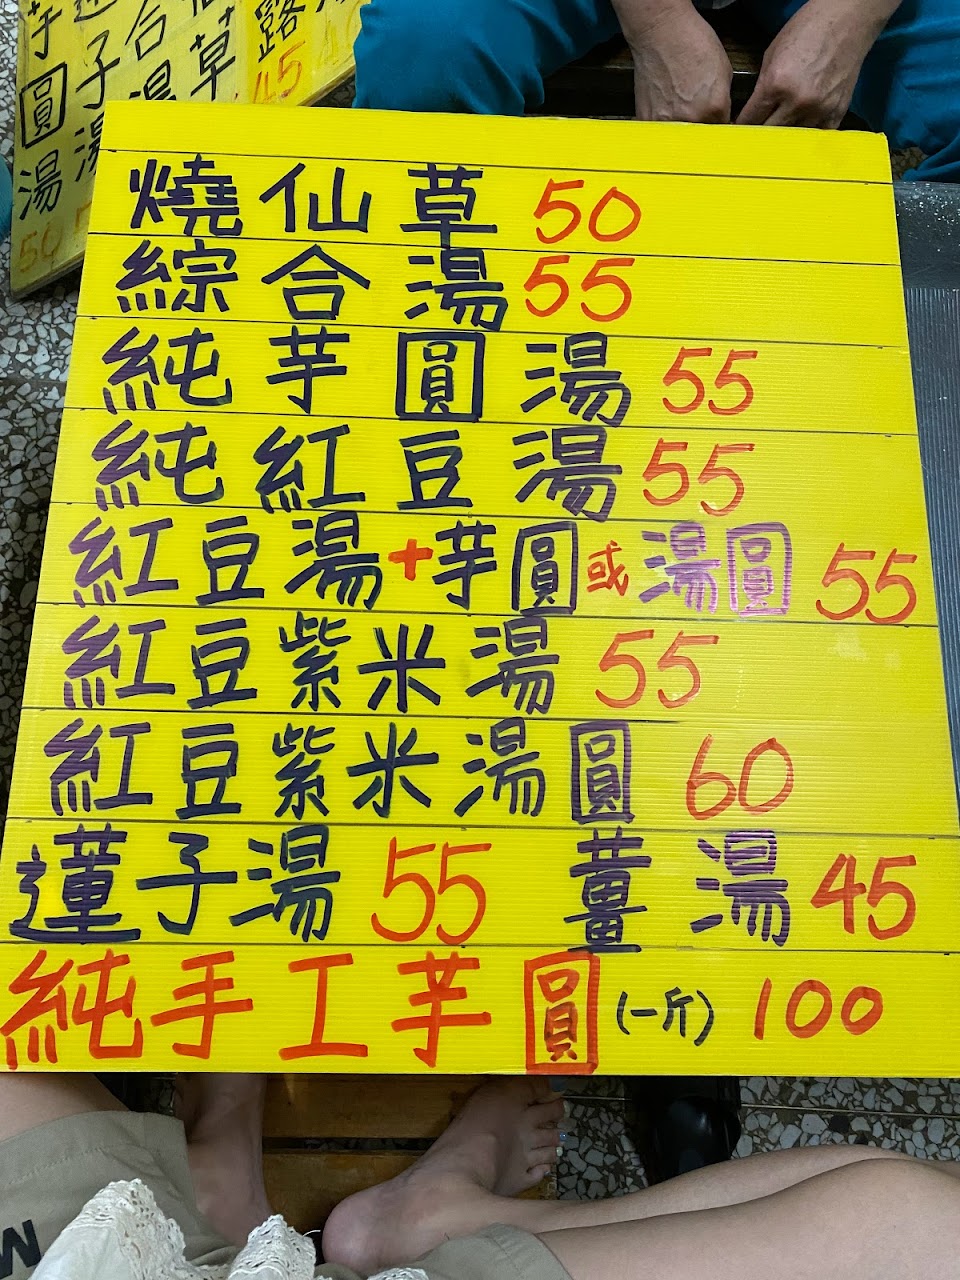 芋圓湯 50
子湯
合湯
草
露 45
燒仙草 50
綜合湯 55
純芋圓湯 55
純紅豆湯 55
紅豆湯+芋圓或湯圓 55
紅豆紫米湯 55
紅豆紫米湯圓 60
蓮子湯 55 薑湯 45
純手工芋圓(一斤) 100